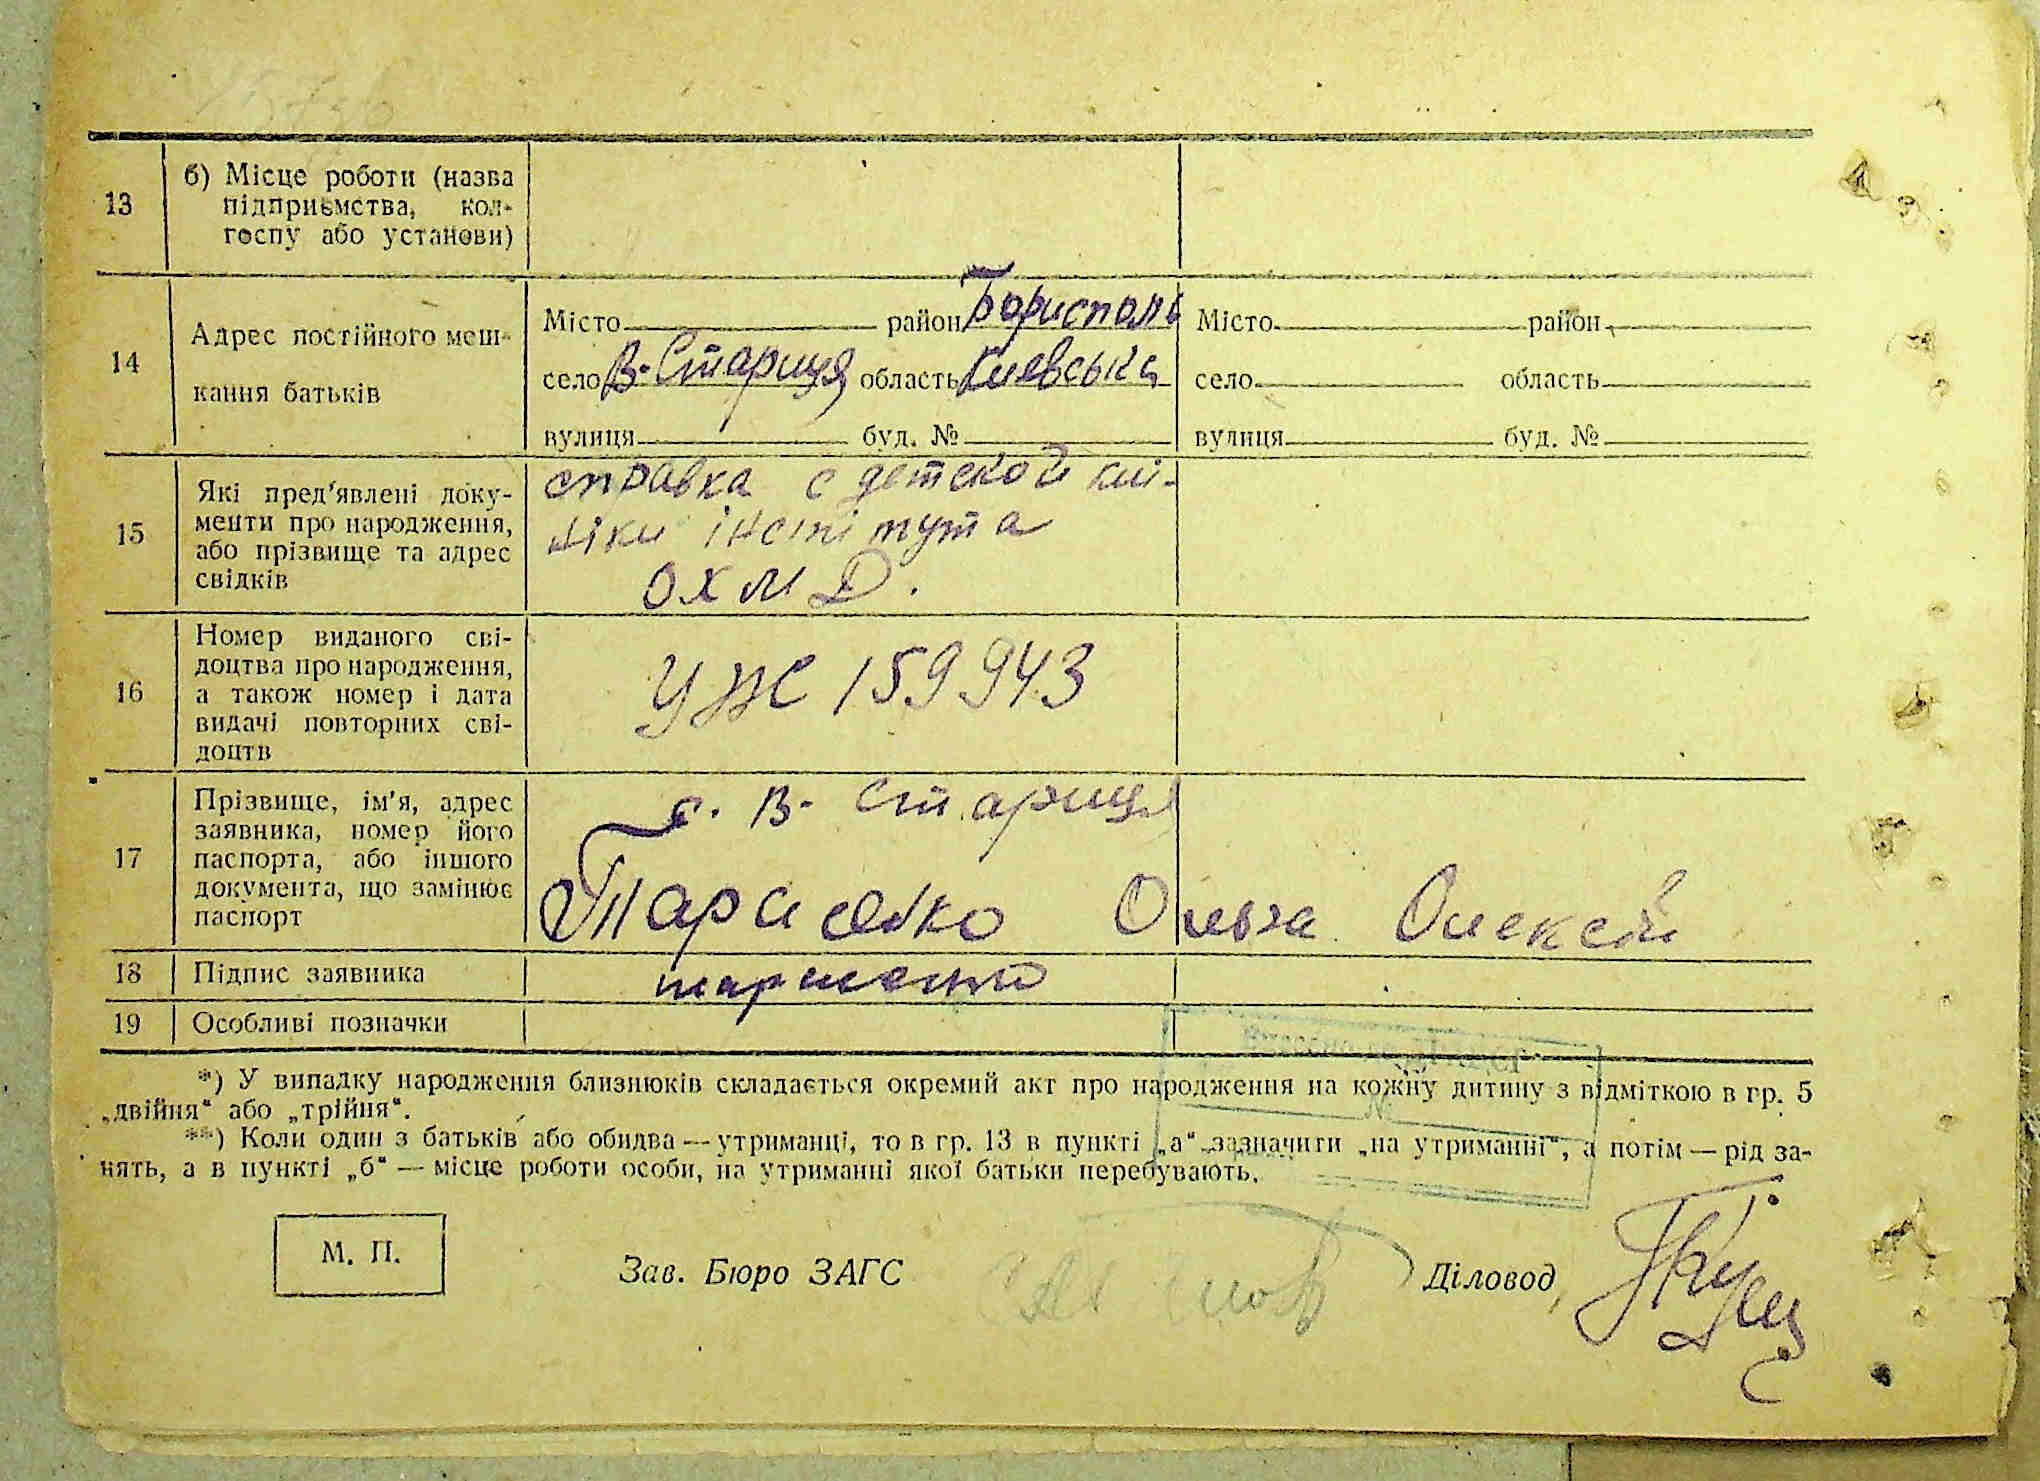 13
б) Місце роботи (назва
підприємства, кол-
госпу або установи)
14
Адрес постійного меш-
кання батьків
Місто район Бориспопь
село В-Стариця область Киевська
вулиця буд. №
Місто район
село область
вулиця буд. №
15
Які пред'явлені доку-
менти про народження,
або прізвище та адрес
свідків
справка с детской клі-
ніки інстітута
ОХМД.
16
Номер виданого сві-
доцтва про народження,
а також номер і дата
видачі повторних сві-
доцтв
УЖС 159943
17
Прізвище, ім'я, адрес
заявника, номер його
паспорта, або іншого
документа, що замінює
паспорт
с. В- Стариця
Ольга Олексій
18
Підпис заявника
19
Особливі позначки
*) У випадку народження близнюків складається окремий акт про народження на кожну дитину з відміткою в гр. 5
„двійня“ або „трійня“.
**) Коли один з батьків або обидва — утриманці, то в гр. 13 в пункті „а“ зазначити „на утриманні“, а потім — рід за-
нять, а в пункті „б“ — місце роботи особи, на утриманні якої батьки перебувають.
М. П.
Зав. Бюро ЗАГС
Діловод